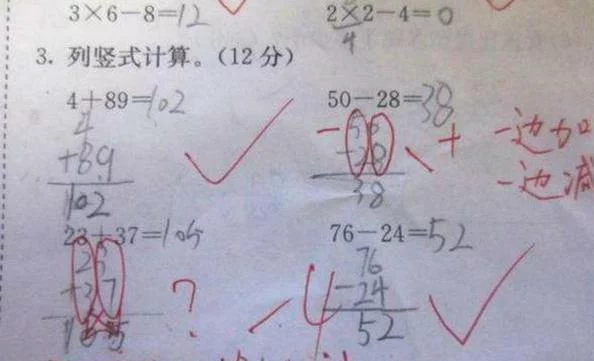 3×6－8=12
2×2－4=0
4
3. 列竖式计算。(12分)
4＋89=102
50－28=38
4
+89
102
50
-28
38
－
＋
一边加
一边减
23＋37=105
76－24=52
23
+37
105
?
76
-24
52